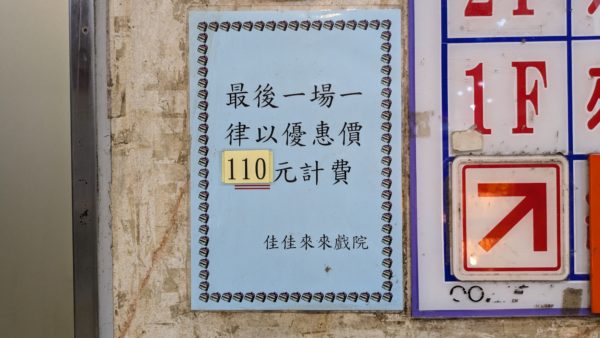 最後一場一
律以優惠價
110元計費
佳佳來來戲院
2F
1F